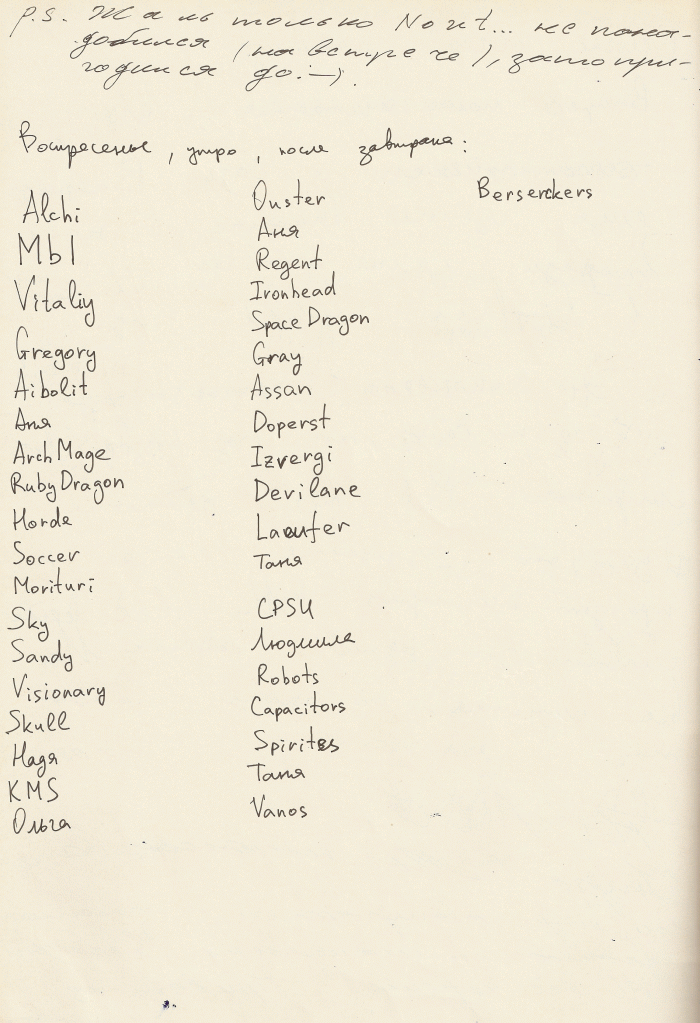 P.S. Жаль только Nout... не пона-
добился (на встрече), зато при-
годился до :—).
Воскресенье, утро, после завтрака:
Alchi
Mbl
Vitaliy
Gregory
Aibolit
Аня
ArchMage
RubyDragon
Horde
Soccer
Morituri
Sky
Sandy
Visionary
Skull
Надя
KMS
Ольга
Ouster
Аня
Regent
Ironhead
SpaceDragon
Gray
Assan
Doperst
Izvergi
Devilane
Laeufer
Таня
CPSU
Людмила
Robots
Capacitors
Spirites
Таня
Vanos
Berserckers